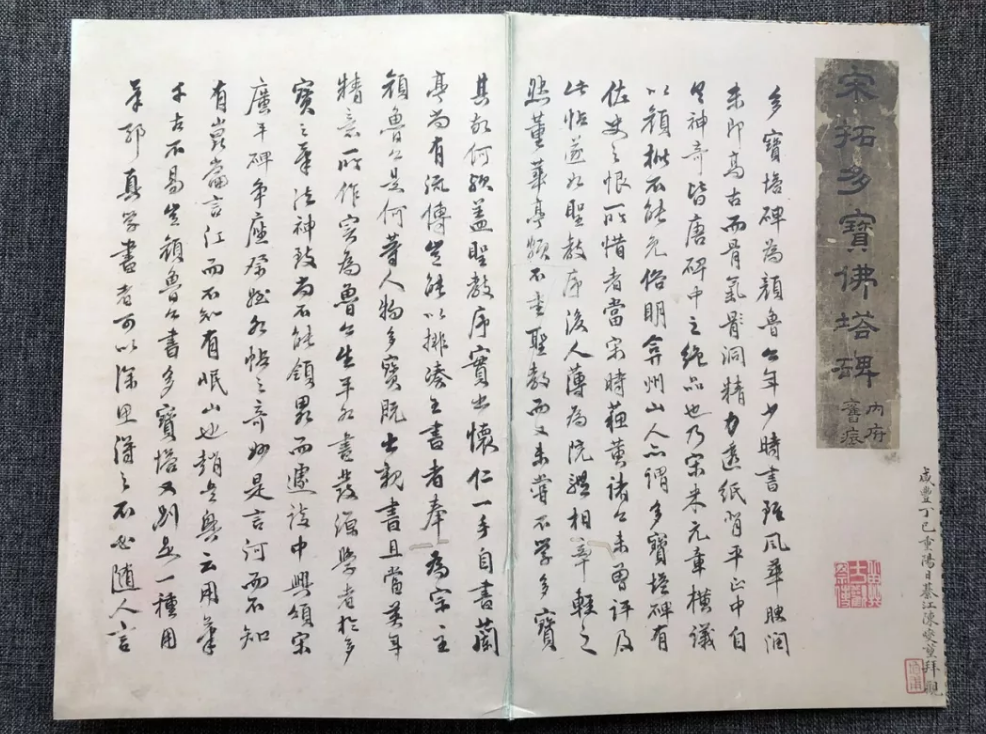 宋拓多寶佛塔碑
内府
咸豐丁巳重陽日綦江陳
拜觀
多寶塔碑為顏魯公年少時書雖風華腴潤
未即高古而骨氣洞精力透紙背平正中自
見神奇皆唐碑中之絕品也乃宋米元章橫議
以顏不能免俗明弇州山人亦謂多寶塔碑有
佐史之恨所惜者當宋時蘇黃諸公未曾評及
此帖遂如聖教序後人薄為院體相率輕之
然董華亭頗不重聖教而又未嘗不學多寶
其故何歟蓋聖教序實出懷仁一手自書蘭
亭尚有流傳豈能以排湊王書者奉為宗主
顏魯公是何等人物多寶既出親書且當英年
精意所作實為魯公生平書發源學者於多
寶之筆法神致尚不能領畧而遽談中興頌宋
廣平碑爭座祭姪各帖之奇妙是言河而不知
有崑崙言江而不知有岷山也趙吳興云用筆
千古不易豈顏魯公書多寶塔又別出一種用
筆耶真學書者可以深思得之不必隨人言